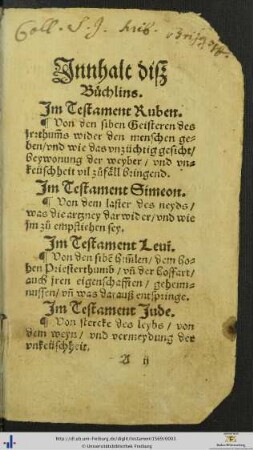 Coll. S. J. frib. Brisg.
Innhalt diß
Büchlins.
Im Testament Ruben.
¶ Von den siben Geisteren des
Irrthums wider den menschen ge-
ben/vnd wie das vnzüchtig gesicht/
beywonung der weyber/ vnd vn-
keüschheit vil zůfäll bringend.
Im Testament Simeon.
¶ Von dem laster des neyds/
was die artzney darwider/ vnd wie
jm zů empfliehen sey.
Im Testament Leui.
¶ Von den sibẽ himlen/ dem ho-
hen Priesterthumb/ vñ der hoffart/
auch jren eigenschafften/ geheim-
nussen/ vñ was darauß entspringe.
Im Testament Jude.
¶ Von stercke des leybs/ von
dem weyn/ vnd vermeydung der
vnkeüschheit.
A ij
© Universitätsbibliothek Freiburg